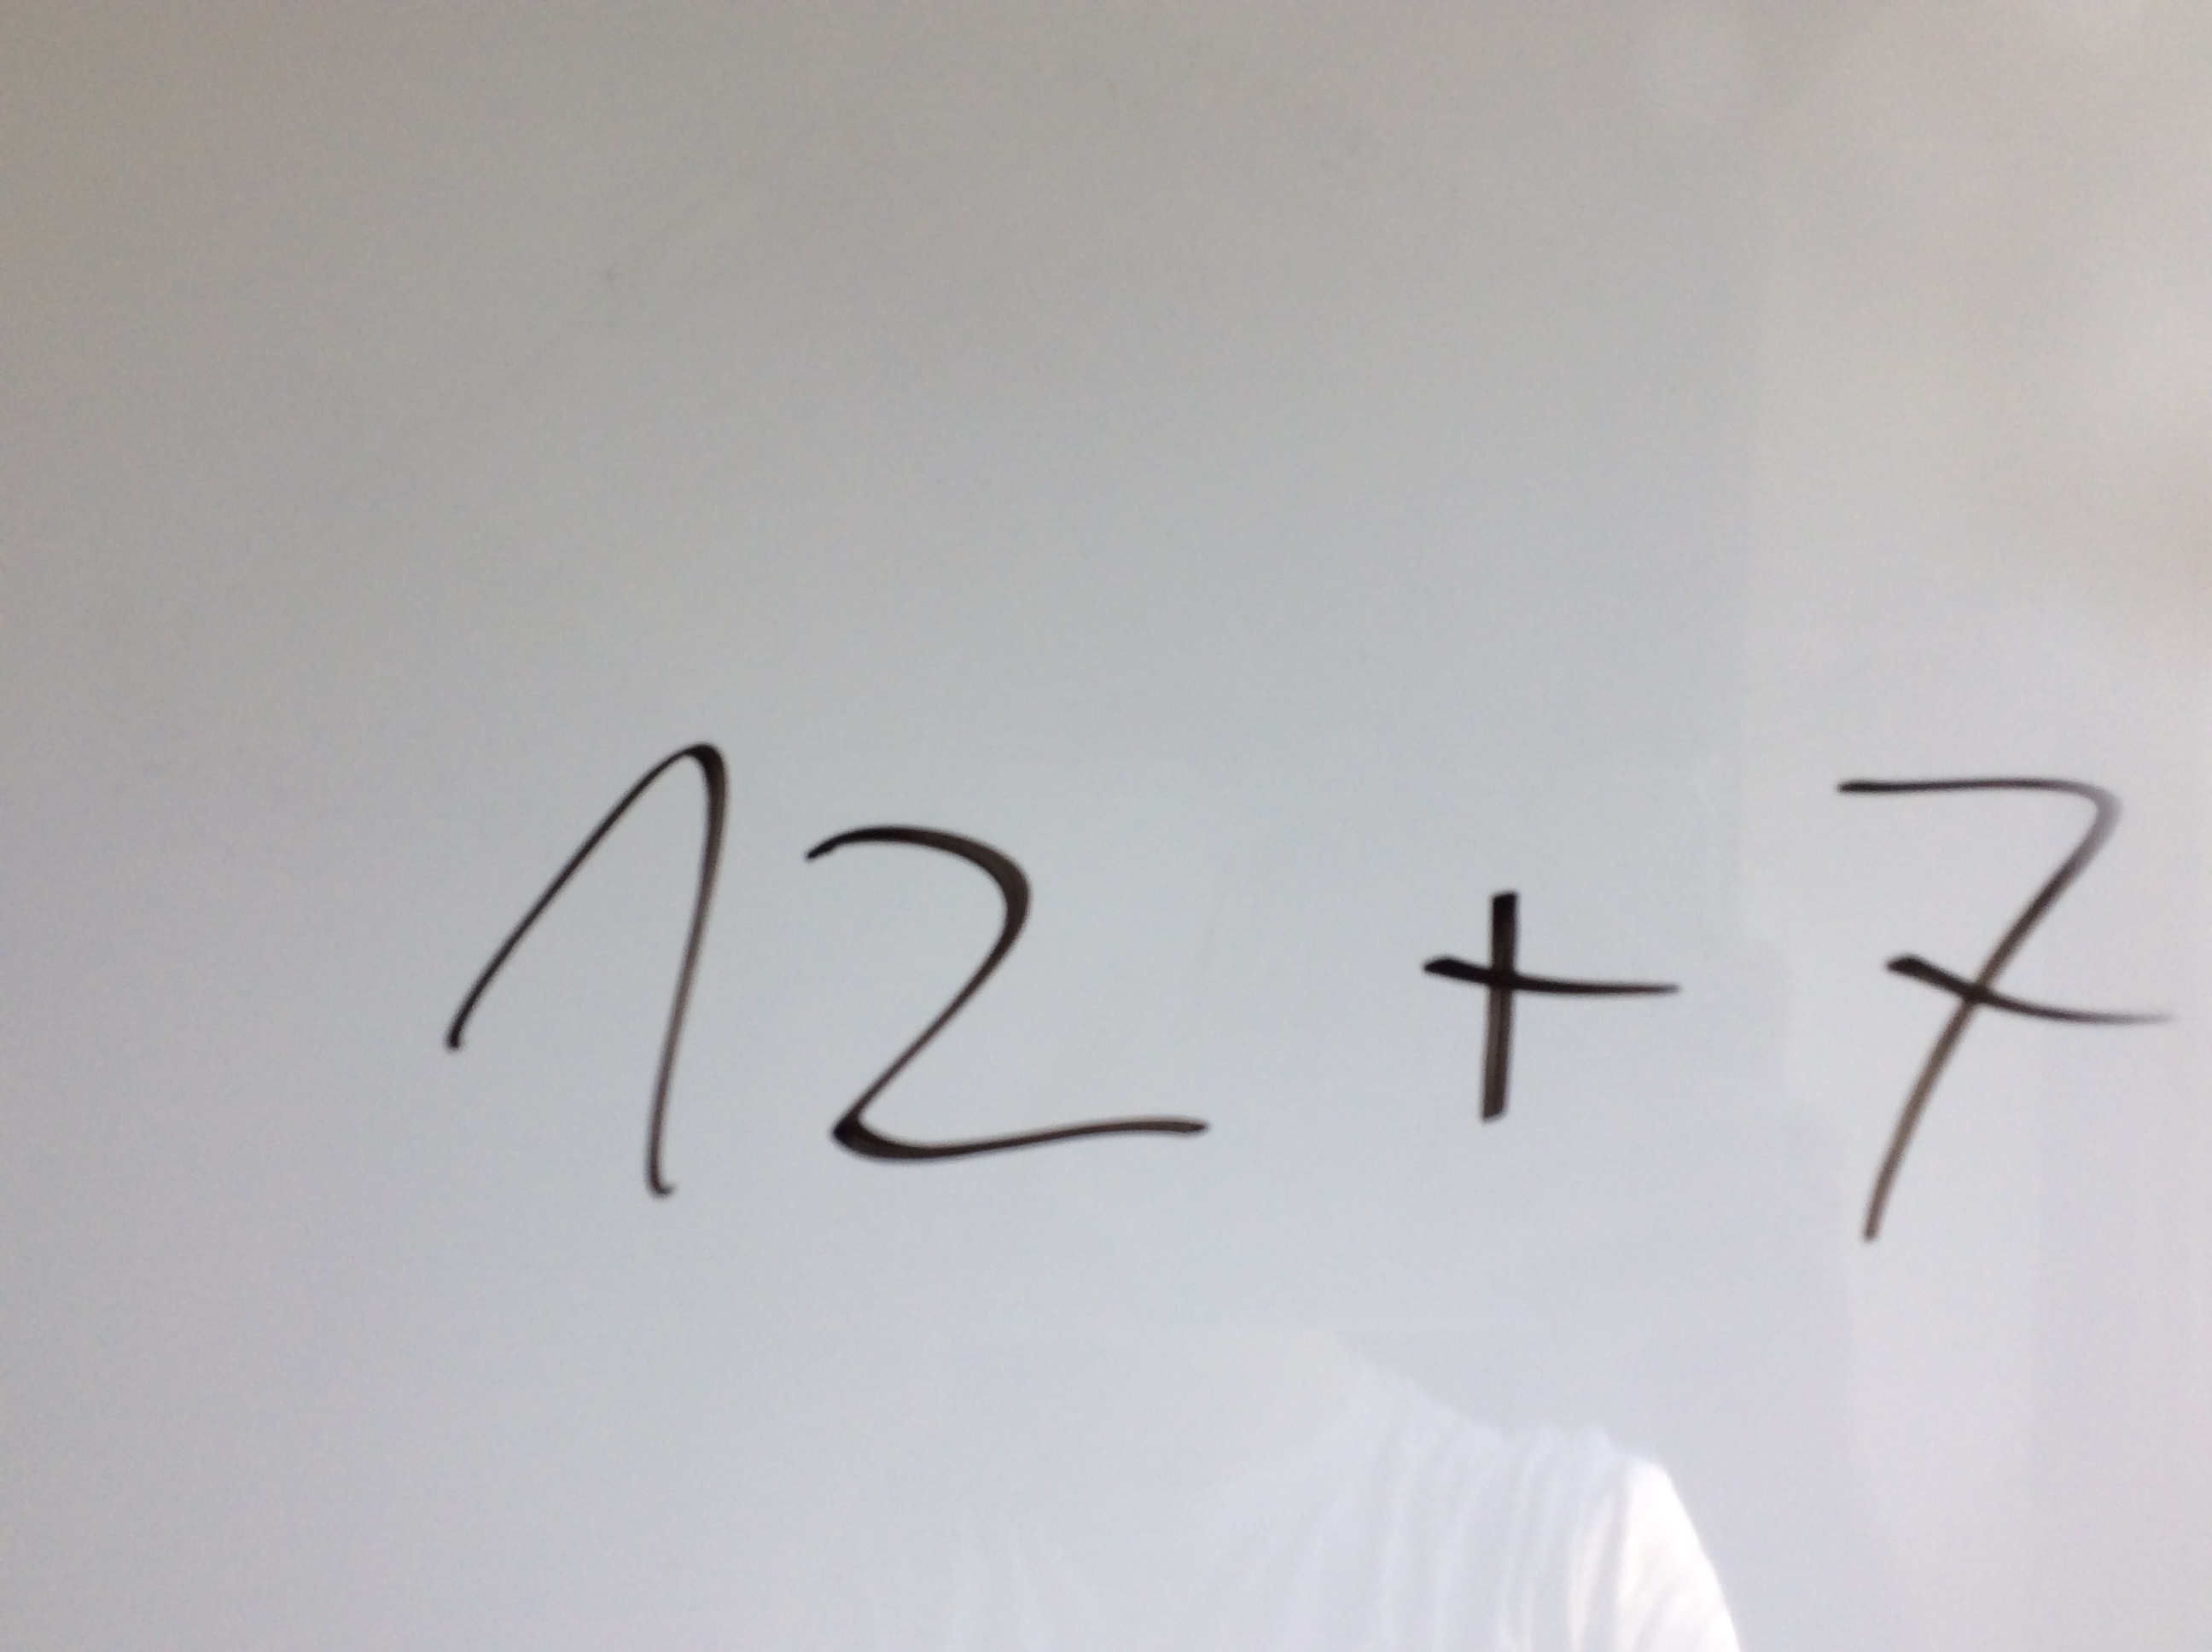 12 + 7